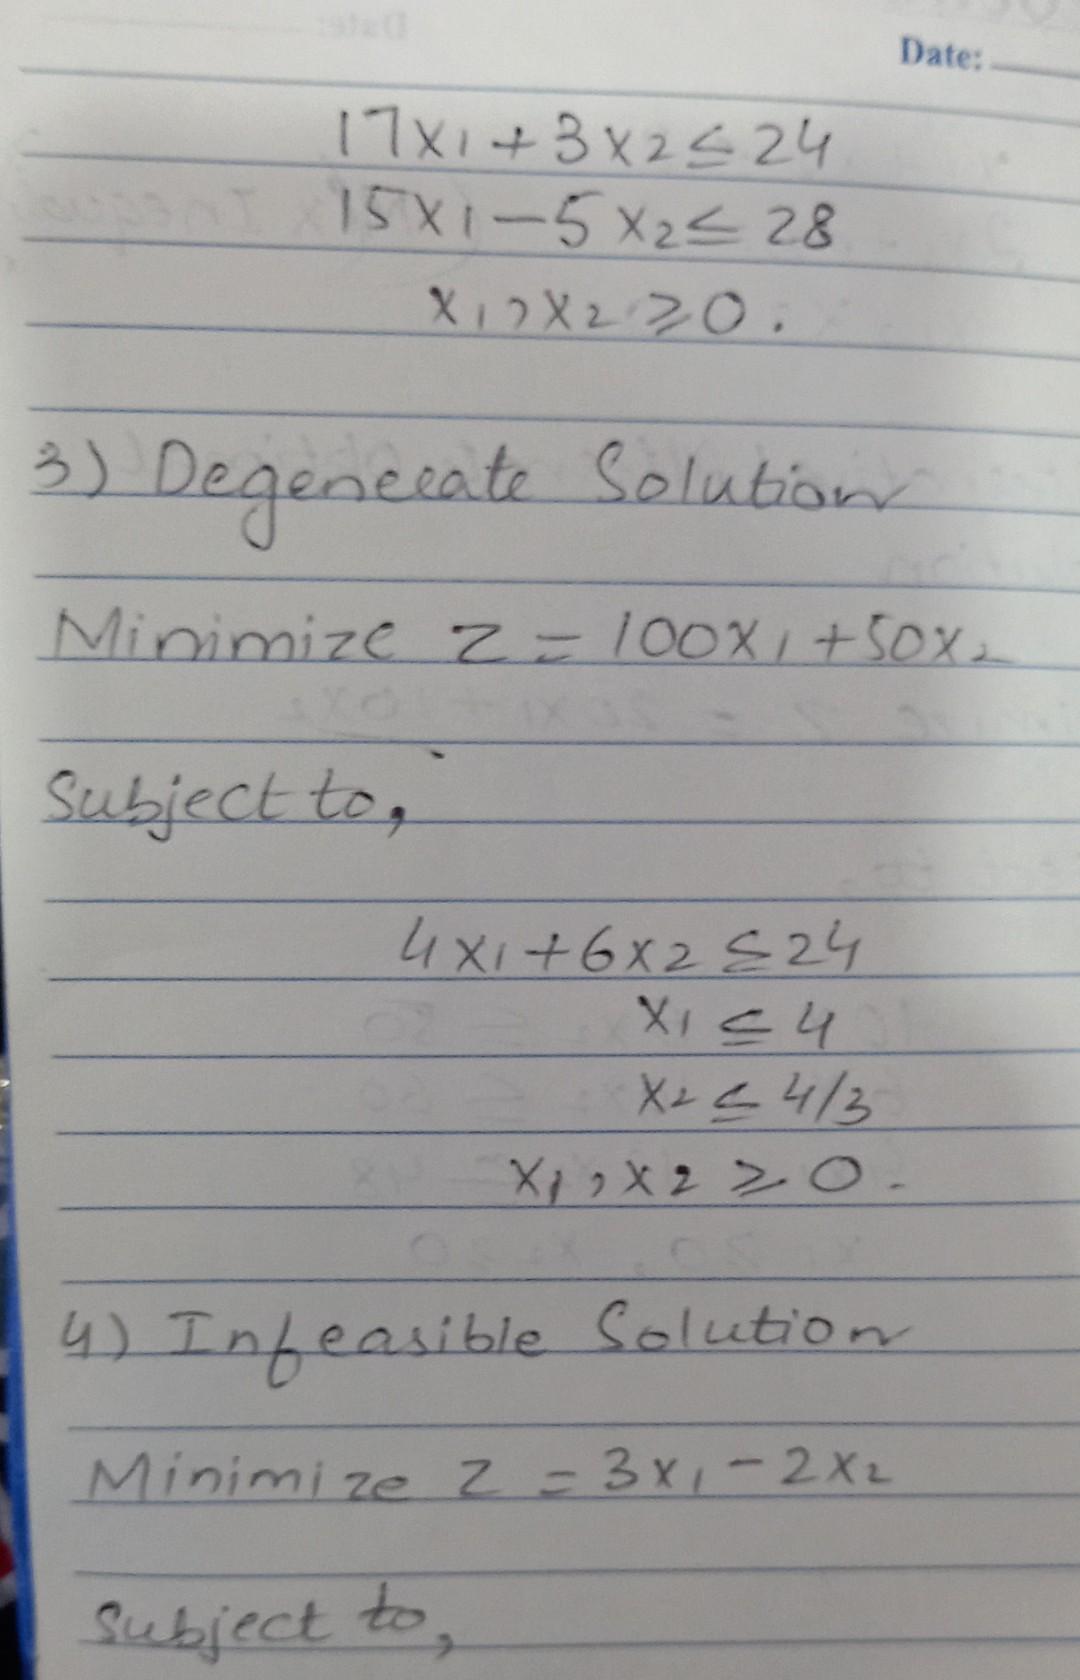 Date:
17x1 + 3x2 ≤ 24
15x1 - 5x2 ≤ 28
x1, x2 ≥ 0.
3) Degenerate Solution
Minimize Z = 100x1 + 50x2
Subject to,
4x1 + 6x2 ≤ 24
x1 ≤ 4
x2 ≤ 4/3
x1, x2 ≥ 0.
4) Infeasible Solution
Minimize Z = 3x1 - 2x2
Subject to,